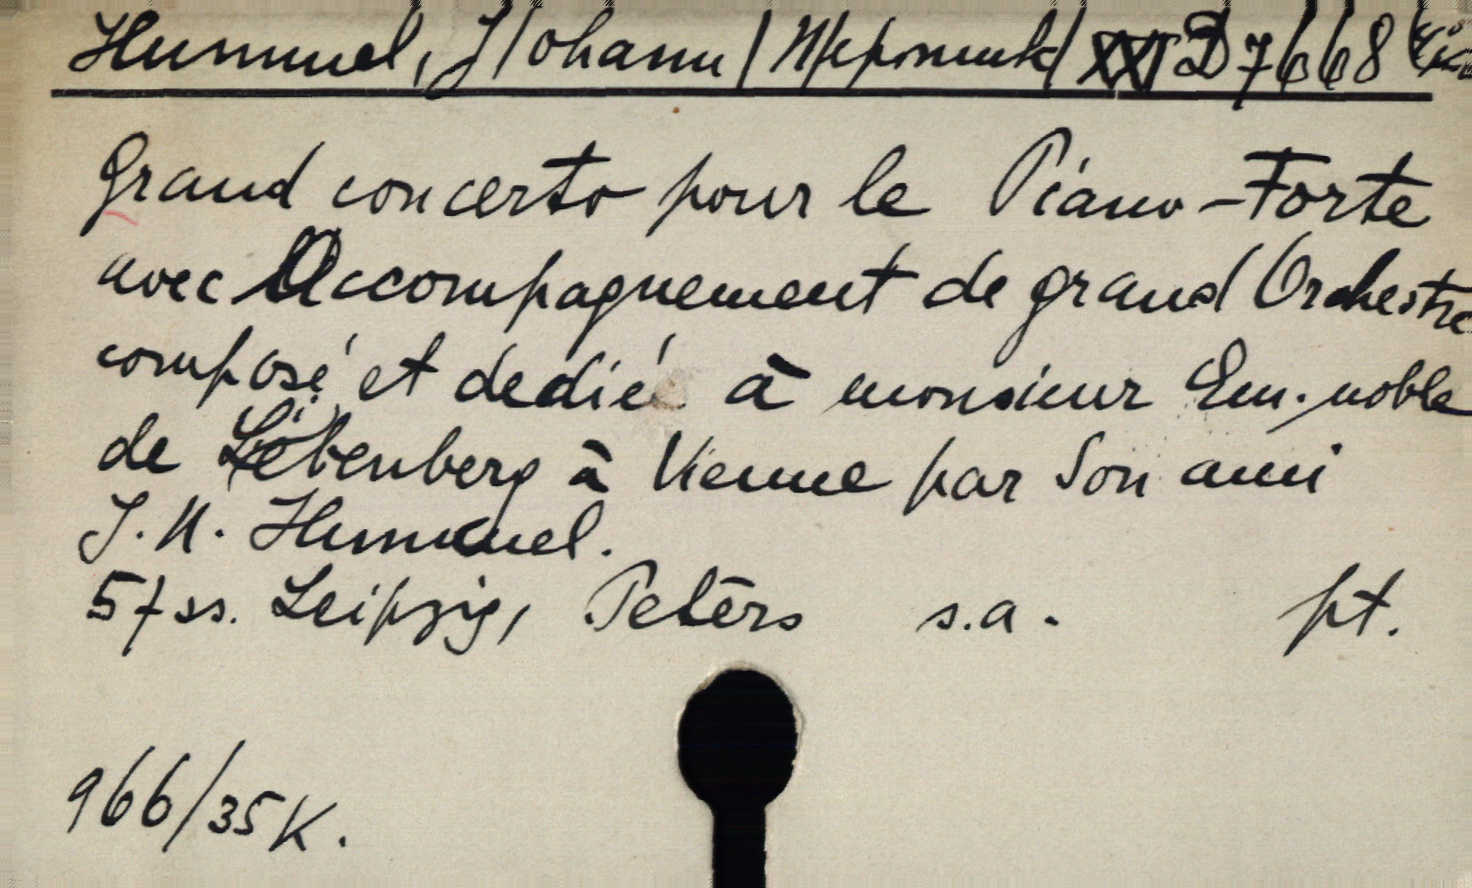 Hummel, J/ohann/ N/epomuk/ XXI D 7668
Grand concerto pour le Piano-Forte
avec Accompagnement de grand Orchestre
composé et dedié à monsieur Em. noble
de Löbenberg à Vienne par Son ami
J. N. Hummel.
57 ss. Leipzig, Peters s.a. pt.
966/35 K.